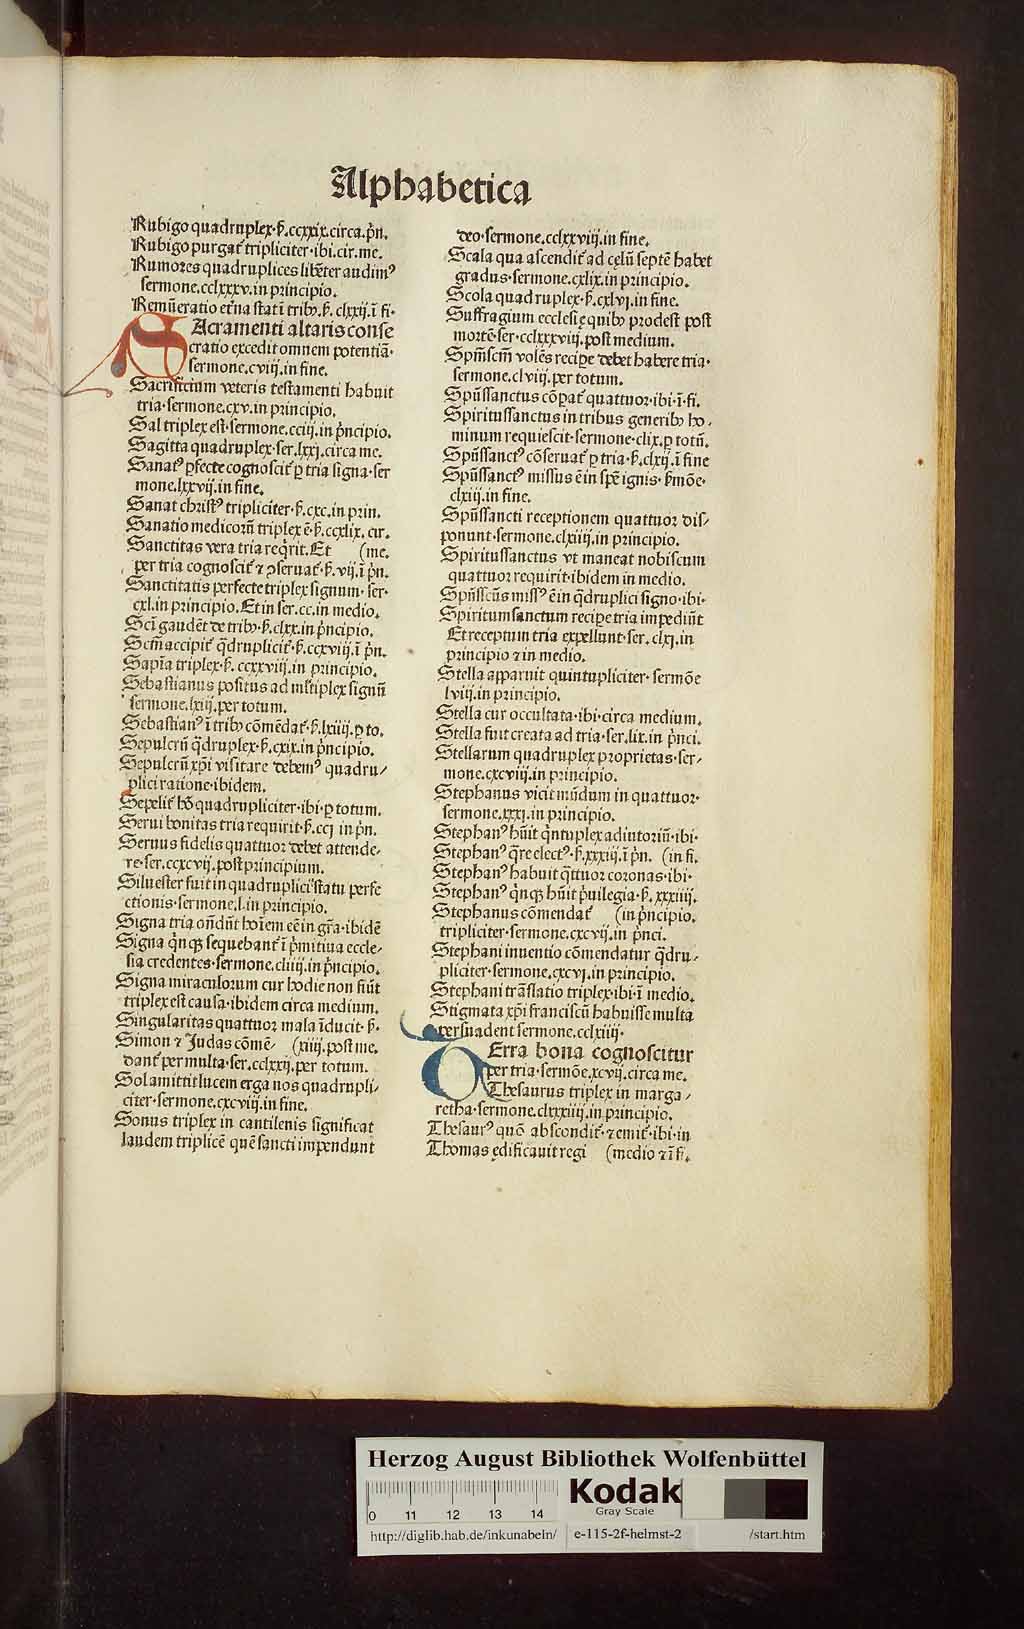 Alphabetica
Rubigo quadruplex·ẜ.ccxxix.circa.pͥn.
Rubigo purgat᷑ tripliciter·ibi.cir.me.
Rumores quadruplices libēter audimꝰ
sermone.cclxxxv.in principio.
Remūeratio et̄na stat ī tribꝰ.ẜ. clxxij.ī fi·
SAcramenti altaris conse
cratio excedit omnem potentiā·
sermone.cviij.in fine.
Sacrificium veteris testamenti habuit
tria·sermone.cxv.in principio.
Sal triplex est·sermone.cciij.in pͥncipio.
Sagitta quadruplex·ser.lxxj.circa me.
Sanatꝰ ꝑfecte cognoscit᷑ ꝑ tria signa·ser
mone.lxxvij.in fine.
Sanat christꝰ tripliciter·ẜ.cxc.in prin.
Sanatio medicorū triplex ē·ẜ.ccxlix. cir.
Sanctitas vera tria reqͥrit.Et (me.
per tria cognoscit᷑ ⁊ ꝯseruat᷑·ẜ.vij.ī pͥn.
Sanctitatis perfecte triplex signum· ser·
cxl.in principio.Et in ser.cc.in medio.
Scī gaudēt de tribꝰ·ẜ.clxx.in pͥncipio.
Scm̄ accipit᷑ qͣdruplicit᷑·ẜ.ccxviij.ī pͥn.
Sapīa triplex·ẜ.ccxxviij.in principio.
Sebastianus positus ad ml̄tiplex signū
sermone.lxiij.per totum.
Sebastianꝰ ī tribꝰ cōmēdat᷑·ẜ.lxiiij.ꝑ to.
Sepulcrū qͣdruplex·ẜ.cxix.in pͥncipio.
Sepulcrū xp̄i visitare debemꝰ quadru-
plici ratione·ibidem.
Sepelit᷑ hō quadrupliciter·ibi·ꝑ totum.
Serui bonitas tria requirit·ẜ.ccj in pͥn.
Seruus fidelis quattuor debet attende-
re·ser.ccxcvij.post principium.
Siluester fuit in quadruplici statu perfe
ctionis·sermone.l.in principio.
Signa tria oñdūt hoīem eē in gr̄a·ibidē
Signa qͥnqꝫ sequebant᷑ ī pͥmitiua eccle-
sia credentes·sermone.cliiij.in pͥncipio.
Signa miraculorum cur hodie non fiūt
triplex est causa·ibidem circa medium.
Singularitas quattuor mala īducit·ẜ.
Simon ⁊ Judas cōmē- (xiiij.post me.
dant᷑ per multa·ser.cclxxij.per totum.
Sol amittit lucem erga nos quadrupli-
citer·sermone.cxcviij.in fine.
Sonus triplex in cantilenis significat
laudem triplicē quē sancti impendunt
deo·sermone.cclxxviij.in fine.
Scala qua ascendit᷑ ad celū septē habet
gradus·sermone.cxlix.in principio.
Scola quadruplex·ẜ.cxlvj.in fine.
Suffragium ecclesię quibꝰ prodest post
mortē·ser·cclxxxviij.post medium.
Spm̄scm̄ volēs recipe debet habere tria·
sermone.clviij.per totum.
Spūssanctus cōꝑat᷑ quattuor·ibi·ī·fi.
Spiritussanctus in tribus generibꝰ ho-
minum requiescit·sermone·clix.ꝑ totū.
Spūssanctꝰ cōseruat᷑ ꝑ tria·ẜ.clxij.ī fine
Spūssanctꝰ missus ē in spē ignis·ẜmōe·
clxiij.in fine.
Spūssancti receptionem quattuor dis-
ponunt·sermone.clxiiij.in principio.
Spiritussanctus vt maneat nobiscum
quattuor requirit·ibidem in medio.
Spūsscūs missꝰ ē in qͣdruplici signo·ibi·
Spiritumsanctum recipe tria impediūt
Et receptum tria expellunt·ser.clxj.in
principio ⁊ in medio.
Stella apparuit quintupliciter·sermōe
lviij.in principio.
Stella cur occultata·ibi·circa medium.
Stella fuit creata ad tria·ser.lix.in pͥnci.
Stellarum quadruplex proprietas·ser-
mone.cxcviij.in principio.
Stephanus vicit mūdum in quattuor·
sermone.xxxj.in principio.
Stephanꝰ hūit qͥntuplex adiutoriū·ibi·
Stephanꝰ qͣre electꝰ·ẜ.xxxiij.ī pͥn. (in fi.
Stephanꝰ habuit qͣttuor coronas·ibi·
Stephanꝰ qͥnqꝫ hūit pͥuilegia·ẜ.xxxiiij.
Stephanus cōmendat᷑ (in pͥncipio.
tripliciter·sermone.cxcvij.in pͥnci.
Stephani inuentio cōmendatur qͣdru-
pliciter·sermone.cxcvj.in principio.
Stephani trāslatio triplex·ibi·ī medio.
Stigmata xp̄i franciscū habuisse multa
persuadent sermone.cclxiiij·
TErra bona cognoscitur
per tria·sermōe.xcvij.circa me.
Thesaurus triplex in marga-
retha·sermone.clxxxiiij.in principio.
Thesaurꝰ quō abscondit᷑·⁊ emit᷑·ibi·in
Thomas ędificauit regi (medio ⁊ ī fi.
Herzog August Bibliothek Wolfenbüttel
0 11 12 13 14
Kodak
Gray Scale
http://diglib.hab.de/inkunabeln/ e-115-2f-helmst-2 /start.htm